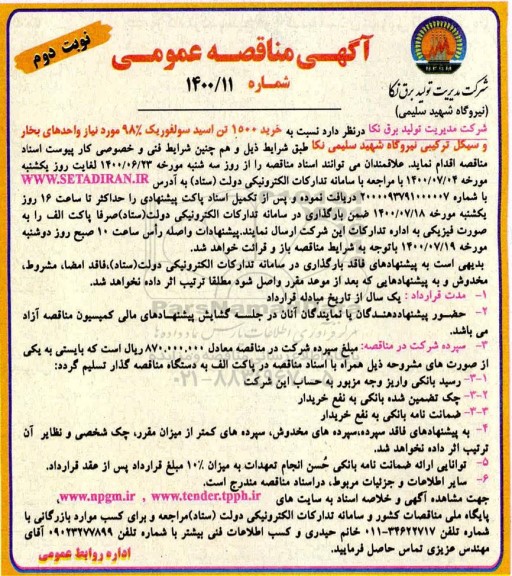 نوبت دوم
آگهی مناقصه عمومی
شماره ۱۴۰۰/۱۱
N.P.G.M
شرکت مدیریت تولید برق نکا
(نیروگاه شهید سلیمی)
شرکت مدیریت تولید برق نکا درنظر دارد نسبت به خرید ۱۵۰۰ تن اسید سولفوریک ۹۸% مورد نیاز واحدهای بخار
و سیکل ترکیبی نیروگاه شهید سلیمی نکا طبق شرایط ذیل و هم چنین شرایط فنی و خصوصی کار پیوست اسناد
مناقصه اقدام نماید. علاقمندان می توانند اسناد مناقصه را از روز سه شنبه مورخه ۱۴۰۰/۰۶/۲۳ لغایت روز یکشنبه
مورخه ۱۴۰۰/۰۷/۰۴ با مراجعه با سامانه تدارکات الکترونیکی دولت (ستاد) به آدرس WWW.SETADIRAN.IR
با شماره ۲۰۰۰۰۹۳۷۹۱۰۰۰۰۰۷ دریافت نموده و پس از تکمیل اسناد پاکت پیشنهادی را حداکثر تا ساعت ۱۶ روز
یکشنبه مورخه ۱۴۰۰/۰۷/۱۸ ضمن بارگذاری در سامانه تدارکات الکترونیکی دولت(ستاد)صرفا پاکت الف را به
صورت فیزیکی به اداره تدارکات این شرکت ارسال نمایند.پیشنهادات واصله رأس ساعت ۱۰ صبح روز دوشنبه
مورخه ۱۴۰۰/۰۷/۱۹ باتوجه به شرایط مناقصه باز و قرائت خواهد شد.
بدیهی است به پیشنهادهای فاقد بارگذاری در سامانه تدارکات الکترونیکی دولت(ستاد)،فاقد امضا، مشروط،
مخدوش و به پیشنهادهایی که بعد از موعد مقرر واصل شود مطلقا ترتیب اثر داده نخواهد شد.
۱- مدت قرارداد : یک سال از تاریخ مبادله قرارداد
۲- حضور پیشنهاددهندگان یا نمایندگان آنان در جلسه گشایش پیشنهادهای مالی کمیسیون مناقصه آزاد
می باشد.
۳- سپرده شرکت در مناقصه: مبلغ سپرده شرکت در مناقصه معادل ۸۷۰.۰۰۰.۰۰۰ ریال است که بایستی به یکی
از صورت های مشروحه ذیل همراه با اسناد مناقصه در پاکت الف به دستگاه مناقصه گذار تسلیم گردد:
۳-۱- رسید بانکی واریز وجه مزبور به حساب این شرکت
۳-۲- چک تضمین شده بانکی به نفع خریدار
۳-۳- ضمانت نامه بانکی به نفع خریدار
۴- به پیشنهادهای فاقد سپرده،سپرده های مخدوش، سپرده های کمتر از میزان مقرر، چک شخصی و نظایر آن
ترتیب اثر داده نخواهد شد.
۵- توانایی ارائه ضمانت نامه بانکی حُسن انجام تعهدات به میزان ۱۰% مبلغ قرارداد پس از عقد قرارداد.
۶- سایر اطلاعات و جزئیات مربوط، دراسناد مناقصه مندرج است.
جهت مشاهده آگهی و خلاصه اسناد به سایت های www.npgm.ir , www.tender.tpph.ir،
پایگاه ملی مناقصات کشور و سامانه تدارکات الکترونیکی دولت (ستاد)مراجعه و برای کسب موارد بازرگانی با
شماره تلفن ۳۴۶۲۲۷۱۷-۰۱۱ خانم حیدری و کسب اطلاعات فنی بیشتر با شماره تلفن ۰۹۰۲۳۲۷۷۸۹۹ آقای
مهندس عزیزی تماس حاصل فرمایید.
اداره روابط عمومی